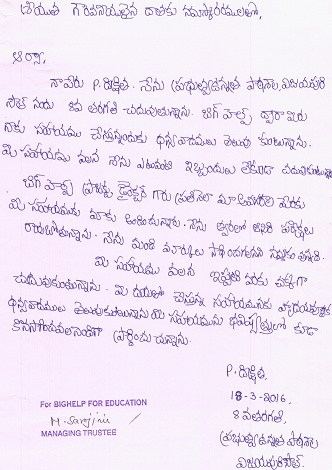 గౌరవనీయులైన దాతకు నమస్కారములతో,
నా పేరు P. దీక్షిత. నేను ప్రభుత్వ ఉన్నత పాఠశాల, విజయపురి
సౌత్ నందు 8వ తరగతి చదువుతున్నాను. బిగ్ హెల్ప్ ద్వారా మీరు
నాకు సహాయము చేస్తున్నందుకు ధన్యవాదములు తెలుపు కుంటున్నాను.
మీ సహాయము వలన నేను ఎటువంటి ఇబ్బందులు లేకుండా చదువుకుంటున్నాను
బిగ్ హెల్ప్ ప్రాజెక్టు డైరెక్టర్ గారు ప్రతినెలా మా
మీ సహాయమును మాకు అందిస్తున్నారు. నేను త్వరలో పరీక్షలు
రాయబోతున్నాను. నేను మంచి మార్కులు
మీ సహాయం వలన ఇప్పటి వరకు చక్కగా
చదువుకుంటున్నాను. మీరు చేస్తున్న సహాయమునకు హృదయపూర్వక
ధన్యవాదములు తెలుపుకుంటున్నాను మీ సహాయమును భవిష్యత్తులో కూడా
కొనసాగించవలసిందిగా ప్రార్థించు చున్నాను.
P. దీక్షిత,
18-3-2016,
8వ తరగతి,
ప్రభుత్వ ఉన్నత పాఠశాల
విజయపురిసౌత్.
For BIGHELP FOR EDUCATION
M. Sarojini
MANAGING TRUSTEE